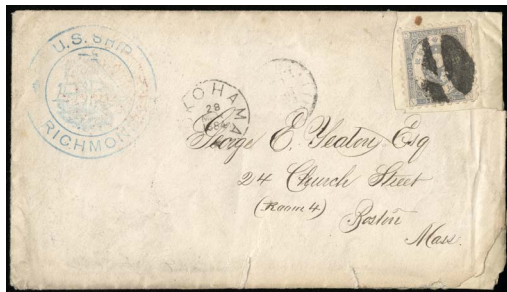 U.S. SHIP
RICHMOND
YOKOHAMA
28
George E. Yeaton, Esq
24 Church Street
(Room 4)
Boston
Mass.